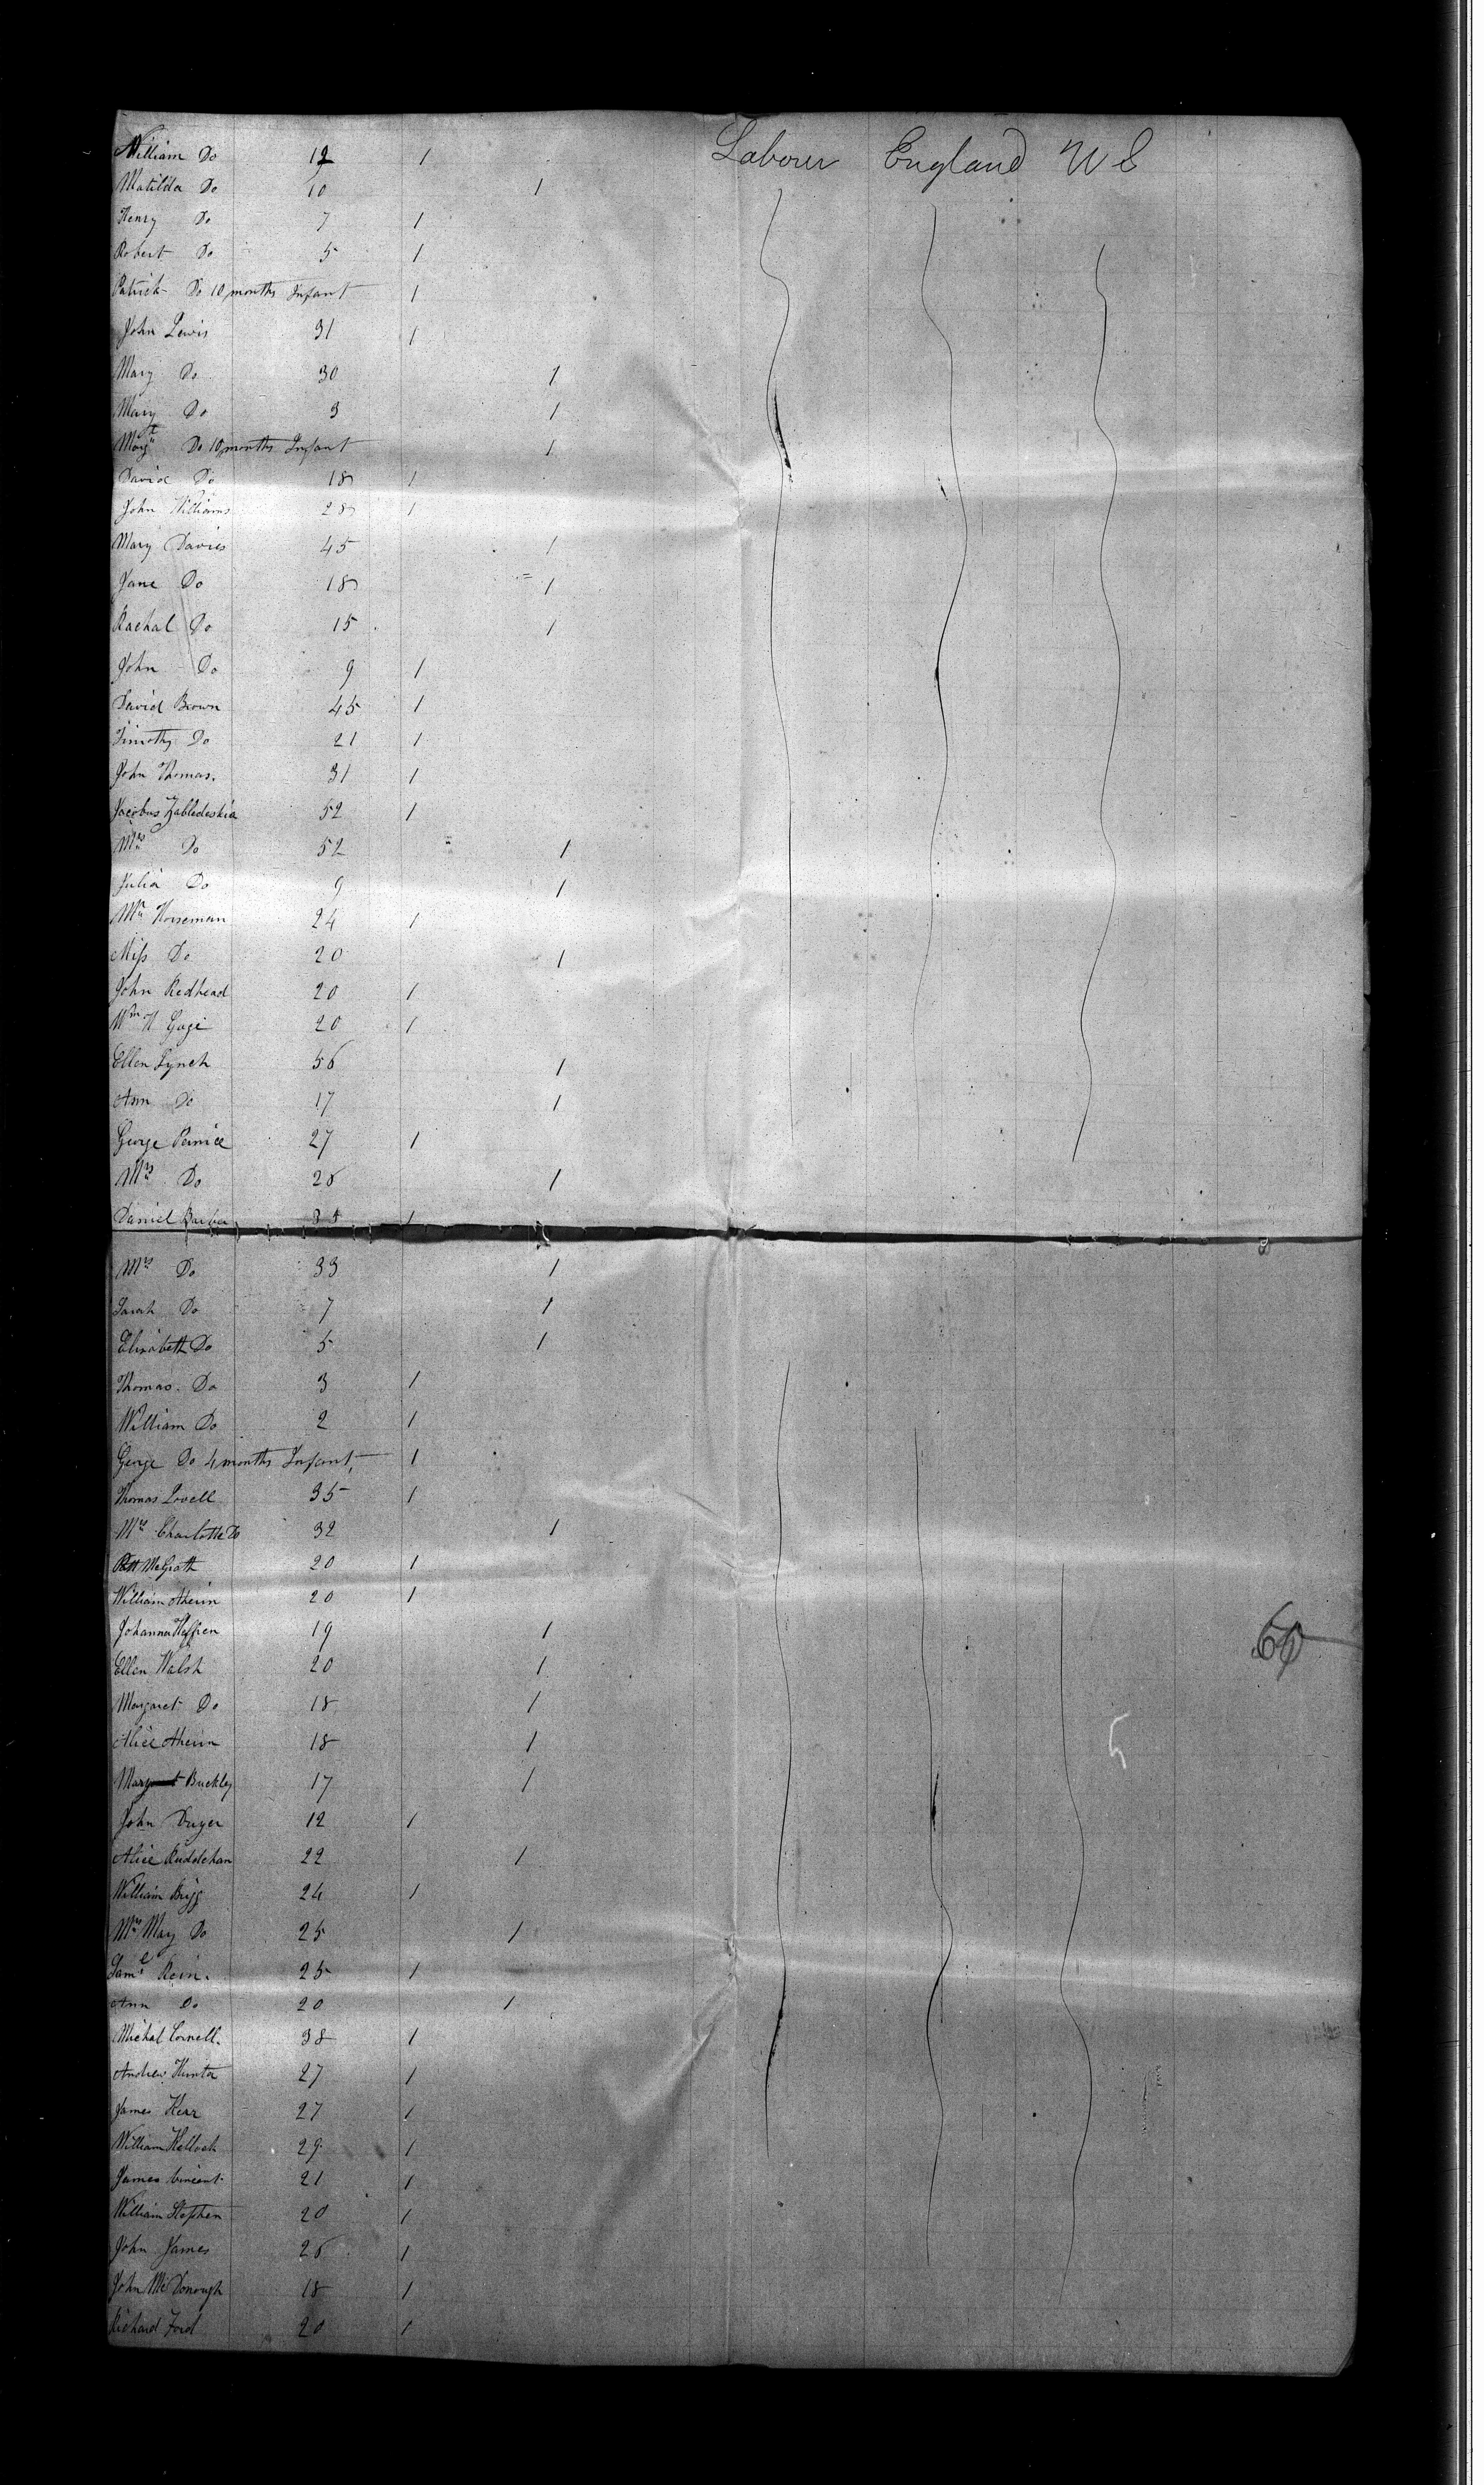 William Do 12 1 Laborer England U S
Matilda Do 10 1
Henry Do 7 1
Robert Do 5 1
Patrick Do 10 months Infant 1
John Lewis 31 1
Mary Do 30 1
Mary Do 3 1
Margt Do 10 months Infant 1
David Do 18 1
John Williams 28 1
Mary Davies 45 1
Jane Do 18 1
Rachal Do 15 1
John Do 9 1
David Brown 45 1
Timothy Do 21 1
John Thomas. 31 1
Jacobus 52 1
Mrs Do 52 1
Julia Do 9 1
Mr Horseman 24 1
Miss Do 20 1
John Redhead 20 1
Wm H Gage 20 1
Ellen Lynch 56 1
Ann Do 17 1
George 27 1
Mrs Do 26 1
Daniel Barber 1
Mrs Do 33 1
Sarah Do 7 1
Elizabeth Do 5 1
Thomas. Do 3 1
William Do 2 1
George Do 4 months Infant, 1
Thomas Lovell 35 1
Mrs Charlotte Do 32 1
McGrath 20 1
William Aherin 20 1
Johanna 19 1
Ellen Walsh 20 1
60
Margaret Do 18 1
Alice Aherin 18 1
Buckley 17 1
John Dwyer 12 1
Alice 22 1
William Brigg 24 1
Mrs May Do 25 1
Saml Rein. 25 1
Ann Do 20 1
Michal Cornell. 38 1
Andrew Hunter 27 1
James Kerr 27 1
William 29 1
James Vincent 21 1
William Stephen 20 1
John James 26 1
John McDonough 18 1
Richard Ford 20 1